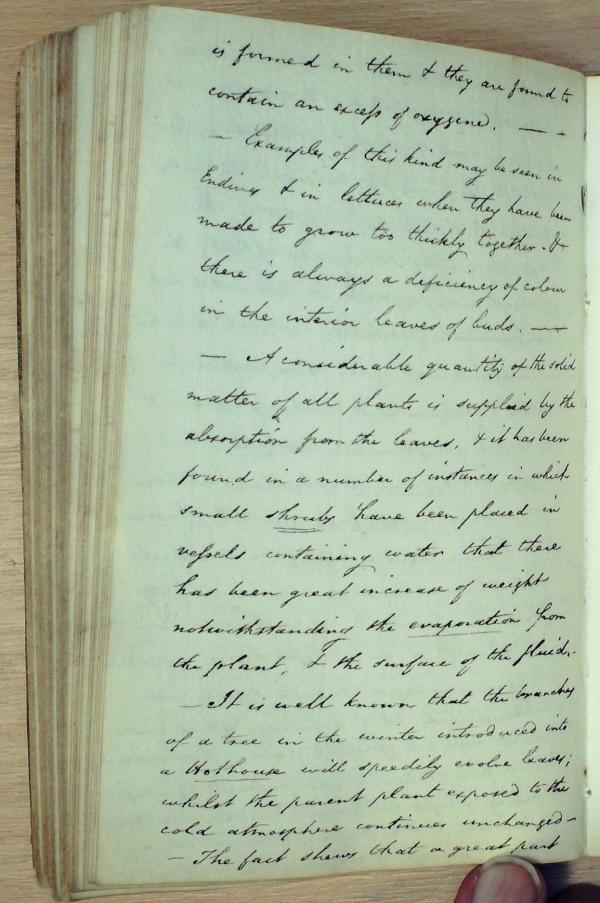 is formed in them & they are found to
contain an excess of oxygene. — -
— Examples of this kind may be seen in
Endives & in lettuces when they have been
made to grow too thickly together. &
there is always a deficiency of colour
in the interior leaves of buds. —
— A considerable quantity of the solid
matter of all plants is supplied by the
absorption from the leaves, & it has been
found in a number of instances in which
small shrubs have been placed in
vessels containing water that there
has been great increase of weight
notwithstanding the evaporation from
the plant, & the surface of the fluid. -
— It is well known that the branches
of a tree in the winter introduced into
a Hothouse will speedily evolve leaves;
whilst the parent plant exposed to the
cold atmosphere continues unchanged -
— The fact shews that a great part